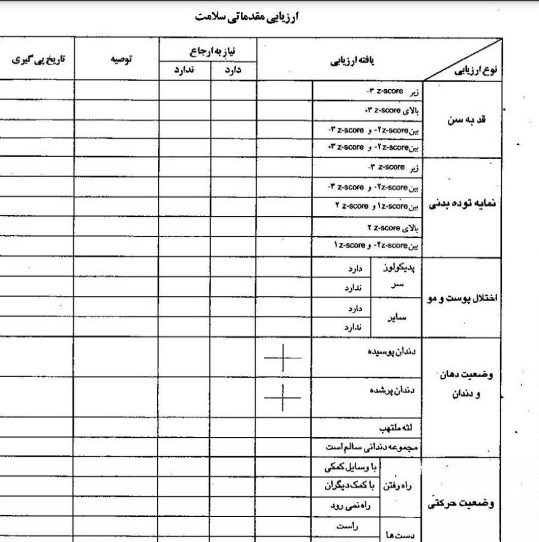 ارزیابی مقدماتی سلامت
نوع ارزیابی
یافته ارزیابی
نیاز به ارجاع
دارد
ندارد
توصیه
تاریخ پی گیری
قد به سن
زیر z-score ۳-
بالای z-score ۳+
بین z-score۲- و z-score ۳-
بین z-score۲- و z-score ۳+
نمایه توده بدنی
زیر z-score ۳-
بین z-score۲- و z-score ۳-
بین z-score۱ و z-score ۲
بالای z-score ۲
بین z-score۲- و z-score ۱
اختلال پوست و مو
پدیکولوز
سر
دارد
ندارد
سایر
دارد
ندارد
وضعیت دهان
و دندان
دندان پوسیده
دندان پرشده
لثه ملتهب
مجموعه دندانی سالم است
وضعیت حرکتی
راه رفتن
با وسایل کمکی
با کمک دیگران
راه نمی رود
دست ها
راست